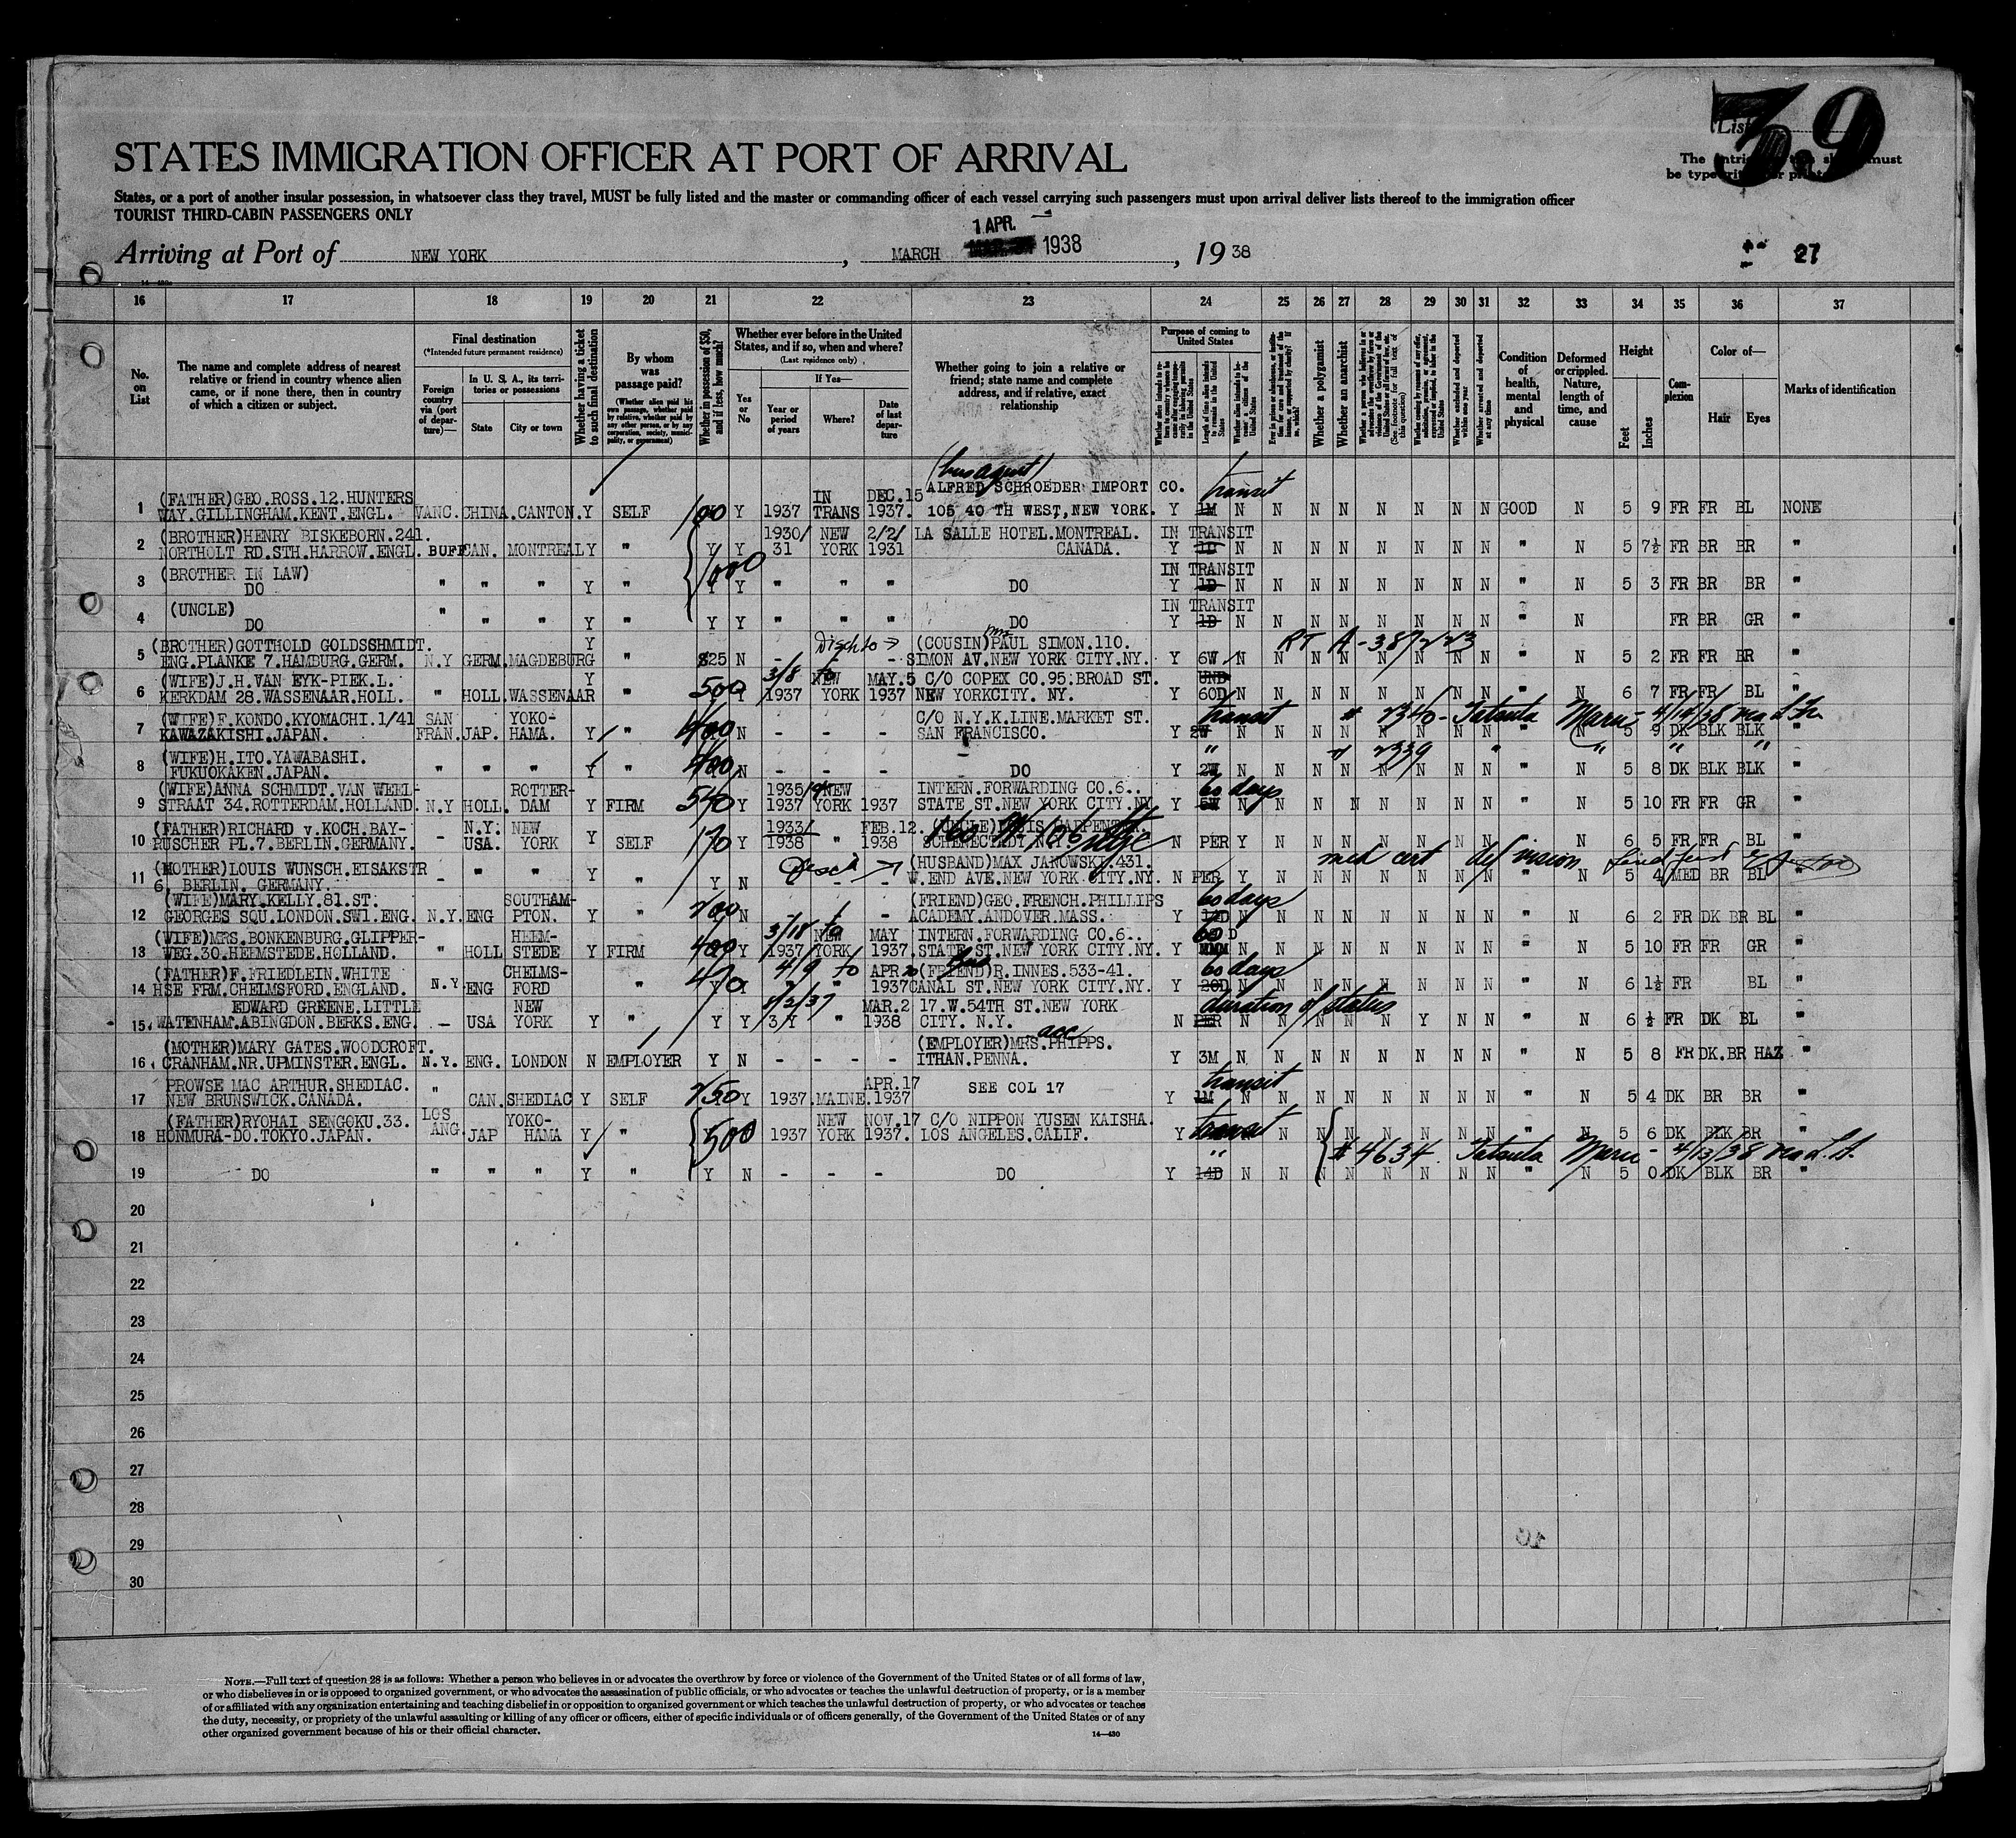 39
List
The entries on this sheet must
be typewritten or printed
STATES IMMIGRATION OFFICER AT PORT OF ARRIVAL
States, or a port of another insular possession, in whatsoever class they travel, MUST be fully listed and the master or commanding officer of each vessel carrying such passengers must upon arrival deliver lists thereof to the immigration officer
TOURIST THIRD-CABIN PASSENGERS ONLY
Arriving at Port of NEW YORK, MARCH 1 APR. 1938, 19 38
27
16 17 18 19 20 21 22 23 24 25 26 27 28 29 30 31 32 33 34 35 36 37
No. on List
The name and complete address of nearest relative or friend in country whence alien came, or if none there, then in country of which a citizen or subject.
Final destination
(*Intended future permanent residence)
Foreign country via (port of departure)—
In U. S. A., its territories or possessions
State City or town
Whether having a ticket to such final destination
By whom was passage paid?
(Whether alien paid his own passage, whether paid by relative, whether paid by any other person, or by any corporation, society, municipality, or government)
Whether in possession of $50, and if less, how much?
Whether ever before in the United States, and if so, when and where?
(Last residence only)
Yes or No
If Yes—
Year or period of years Where? Date of last departure
Whether going to join a relative or friend; state name and complete address, and if relative, exact relationship
Purpose of coming to United States
Whether a polygamist
Whether an anarchist
Condition of health, mental and physical
Deformed or crippled. Nature, length of time, and cause
Height
Feet Inches
Complexion
Color of—
Hair Eyes
Marks of identification
(bus agent)
1 (FATHER)GEO.ROSS.12.HUNTERS IN DEC.15 ALFRED SCHROEDER IMPORT CO. transit
WAY.GILLINGHAM.KENT.ENGL. VANC. CHINA.CANTON. Y SELF 100 Y 1937 TRANS 1937. 105 40 TH WEST,NEW YORK. Y 1M N N N N N N N N GOOD N 5 9 FR FR BL NONE
2 (BROTHER)HENRY BISKEBORN.241. 1930/ NEW 2/2/ LA SALLE HOTEL.MONTREAL. IN TRANSIT
NORTHOLT RD.STH.HARROW.ENGL. BUFF CAN. MONTREAL Y " Y Y 31 YORK 1931 CANADA. Y 1D N N N N N N N N " N 5 7½ FR BR BR "
3 (BROTHER IN LAW) 1000 IN TRANSIT
DO " " " Y " Y Y " " " DO Y 1D N N N N N N N N " N 5 3 FR BR BR "
4 (UNCLE) " IN TRANSIT
DO " " Y " Y Y " " " DO Y 1D N N N N N N N N " N FR BR GR "
5 (BROTHER)GOTTHOLD GOLDSSHMIDT. Y Disch to → (COUSIN)PAUL SIMON.110. RT A-387223
ENG.PLANKE 7.HAMBURG.GERM. N.Y GERM.MAGDEBURG " $25 N - - - SIMON AV.NEW YORK CITY.NY. Y 6W N N N N N N N N " N 5 2 FR FR BR "
6 (WIFE)J.H.VAN EYK-PIEK.L. Y 3/8 to NEW MAY.5 C/O COPEX CO.95.BROAD ST. UND
KERKDAM 28.WASSENAAR.HOLL. " HOLL.WASSENAAR " 500 Y 1937 YORK 1937 NEW YORKCITY. NY. Y 60D N N N N N N N N " N 6 7 FR FR BL "
7 (WIFE)F.KONDO.KYOMACHI.1/41 SAN YOKO- C/O N.Y.K.LINE.MARKET ST. transit # 2340 - Tatsuta Maru - 4/14/38
KAWAZAKISHI.JAPAN. FRAN.JAP. HAMA. Y " 400 N - - - SAN FRANCISCO. Y 2W N N N N N N N N " N 5 9 DK BLK BLK "
8 (WIFE)H.ITO.YAWABASHI. " " 2339 " " " "
FUKUOKAKEN.JAPAN. " " " Y " 400 N - - - DO Y 2W N N N N N N N N " N 5 8 DK BLK BLK "
9 (WIFE)ANNA SCHMIDT.VAN WEEL- ROTTER- 1935/ NEW INTERN.FORWARDING CO.6.. 60 days
STRAAT 34.ROTTERDAM.HOLLAND. N.Y HOLL. DAM Y FIRM 540 Y 1937 YORK 1937 STATE ST.NEW YORK CITY.NY Y 5W N N N N N N N N " N 5 10 FR FR GR "
10 (FATHER)RICHARD v.KOCH.BAY- N.Y. NEW 1933/ FEB.12. 160 W 106 NYC
RUSCHER PL.7.BERLIN.GERMANY. - USA. YORK Y SELF 170 Y 1938 " 1938 N PER Y N N N N N N N " N 6 5 FR FR BL "
11 (MOTHER)LOUIS WUNSCH.EISAKSTR Disch → (HUSBAND)MAX JAKOWSKI.431. med cert def vision
6. BERLIN. GERMANY. - " " Y " Y N - - W.END AVE.NEW YORK CITY.NY. N PER Y N N N N N N N " N 5 4 MED BR BL "
12 (WIFE)MARY.KELLY.81.ST. SOUTHAM- (FRIEND)GEO.FRENCH.PHILLIPS 60 days
GEORGES SQU.LONDON.SW1.ENG. N.Y.ENG PTON. Y " 200 N - - - ACADEMY.ANDOVER.MASS. Y 14D N N N N N N N N " N 6 2 FR DK BR BL "
13 (WIFE)MRS.BONKENBURG.GLIPPER- HEEM- 3/18 to NEW MAY INTERN.FORWARDING CO.6.. 60 D
WEG.30.HEEMSTEDE.HOLLAND. " HOLL STEDE Y FIRM 400 Y 1937 YORK 1937. STATE ST.NEW YORK CITY.NY. Y N N N N N N N N " N 5 10 FR FR GR "
14 (FATHER)F.FRIEDLEIN.WHITE CHELMS- 4/9 to APR 20 (FRIEND)R.INNES.533-41. 60 days
HSE FRM.CHELMSFORD.ENGLAND. N.Y.ENG FORD " 470 Y " " 1937 CANAL ST.NEW YORK CITY.NY. Y 20D N N N N N N N N " N 6 1½ FR BL "
15 EDWARD GREENE.LITTLE NEW 8/2/37 MAR.2 17.W.54TH ST.NEW YORK duration of status
WATENHAM.ABINGDON.BERKS.ENG. - USA YORK Y " Y Y 3Y " 1938 CITY. N.Y. N PER N N N N N Y N N " N 6 ½ FR DK BL "
16 (MOTHER)MARY GATES.WOODCROFT. (EMPLOYER)MRS.PHIPPS. acc
CRANHAM.NR.UPMINSTER.ENGL. N.Y. ENG. LONDON N EMPLOYER Y N - - - - ITHAN.PENNA. Y 3M N N N N N N N N " N 5 8 FR DK.BR HAZ "
17 PROWSE MAC ARTHUR.SHEDIAC. " APR.17 SEE COL 17 transit
NEW BRUNSWICK.CANADA. CAN.SHEDIAC Y SELF 250 Y 1937.MAINE.1937 Y 1M N N N N N N N N " N 5 4 DK BR BR "
18 (FATHER)RYOHAI SENGOKU.33. LOS ANG. YOKO- NEW NOV.17 C/O NIPPON YUSEN KAISHA. transit
HONMURA-DO.TOKYO.JAPAN. JAP HAMA Y " 500 1937 YORK 1937. LOS ANGELES.CALIF. Y N N N N N N N " N 5 6 DK BLK BR "
" # 4634 Tatsuta Maru - 4/13/38
19 DO " " " Y " Y N - - - DO Y 14D N N N N N N N N " N 5 0 DK BLK BR "
20
21
22
23
24
25
26
27
28
29
30
NOTE.—Full text of question 28 is as follows: Whether a person who believes in or advocates the overthrow by force or violence of the Government of the United States or of all forms of law,
or who disbelieves in or is opposed to organized government, or who advocates the assassination of public officials, or who advocates or teaches the unlawful destruction of property, or is a member
of or affiliated with any organization entertaining and teaching disbelief in or opposition to organized government or which teaches the unlawful destruction of property, or who advocates or teaches
the duty, necessity, or propriety of the unlawful assaulting or killing of any officer or officers, either of specific individuals or of officers generally, of the Government of the United States or of any
other organized government because of his or their official character.
14—430